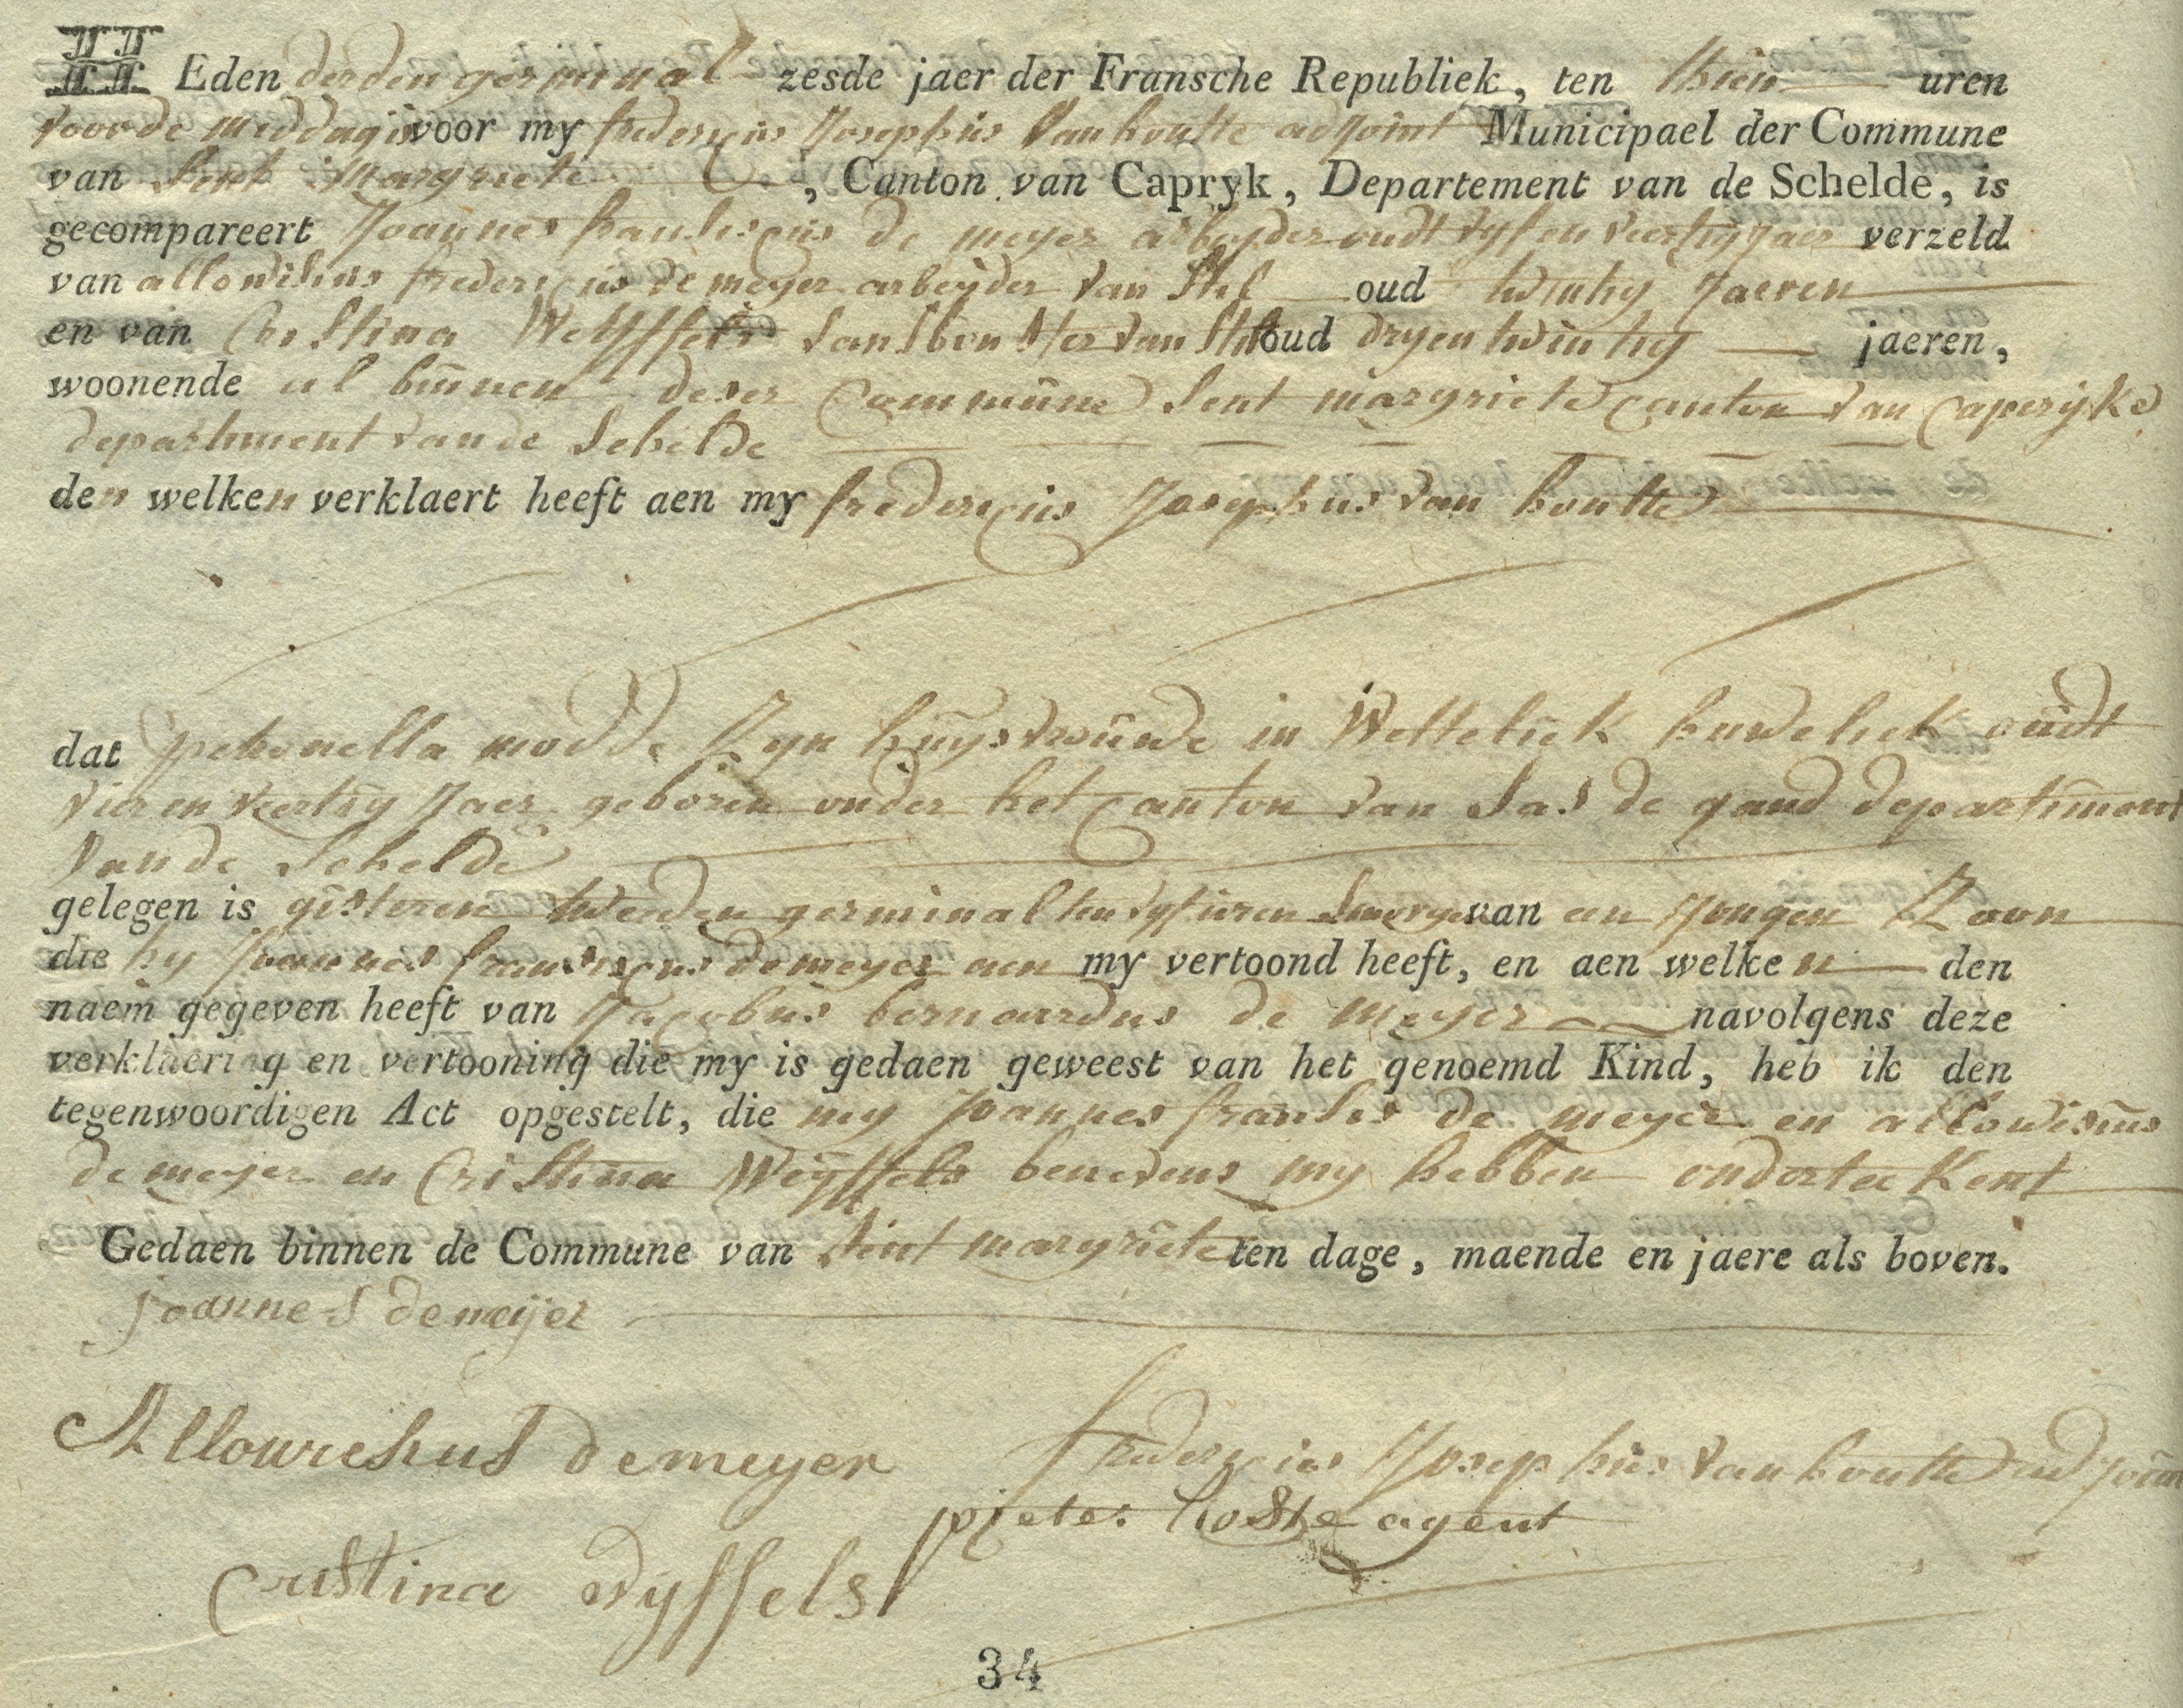 HEden derden germinal zesde jaer der Fransche Republiek, ten thien uren
voorde middag is voor my fredericus Josephus Van houtte adjoint Municipael der Commune
van Sent Margriete, Canton van Capryk, Departement van de Schelde, is
gecompareert Joannes franciscus De meyer arbeyder oudt vyf en veertig jaer verzeld
van allowisius fredericus de meyer arbeyder van Stil oud twintig Jaeren
en van Cristina Weyffels van Stil oud dry en twintig jaeren,
woonende al binnen deser Commune Sent margriete canton van Caperyke
departement vande Schelde
den welken verklaert heeft aen my fredericus Josephus van houtte
dat petronella modde Zyn huysvrouwe in Wettelick huwelick oudt
vier en veertig Jaer geboren onder het Canton van Sas de gand departement
vande Schelde
gelegen is gisteren tweeden germinal ten vyf uren Smorgens van en Jongen Zoon
die hy Joannes franciscus de meyer aen my vertoond heeft, en aen welken den
naem gegeven heeft van Jacobus bernaardus de meyer navolgens deze
verklaering en vertooning die my is gedaen geweest van het genoemd Kind, heb ik den
tegenwoordigen Act opgestelt, die my Joannes francis de meyer en allowisius
de meyer en Cristina Weyffels benevens my hebben onderteekent
Gedaen binnen de Commune van Sint margriete ten dage, maende en jaere als boven.
joannes demeijer
Allowishus demeyer
fredericus Josephus Van houtte adjoint
pieter Coste agent
cristina Vyffels
34